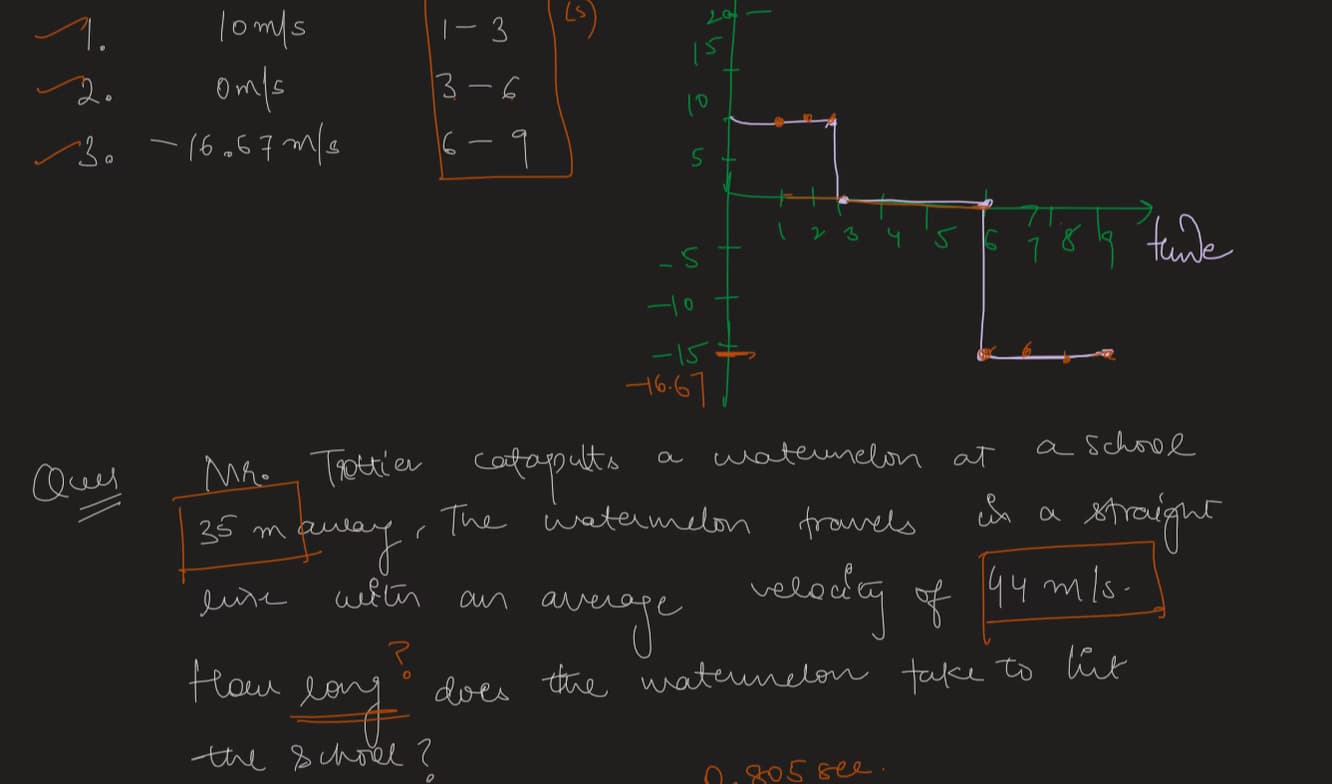 1. 10 m/s 1 - 3 (s)
2. 0 m/s 3 - 6
3. - 16.67 m/s 6 - 9
20
15
10
5
-5
-10
-15
-16.67
1 2 3 4 5 6 7 8 9
time
Ques Mr. Trottier catapults a watermelon at a school
35 m away, The watermelon travels in a straight
line with an average velocity of 44 m/s.
?
How long does the watermelon take to hit
the school?
0.805 sec.